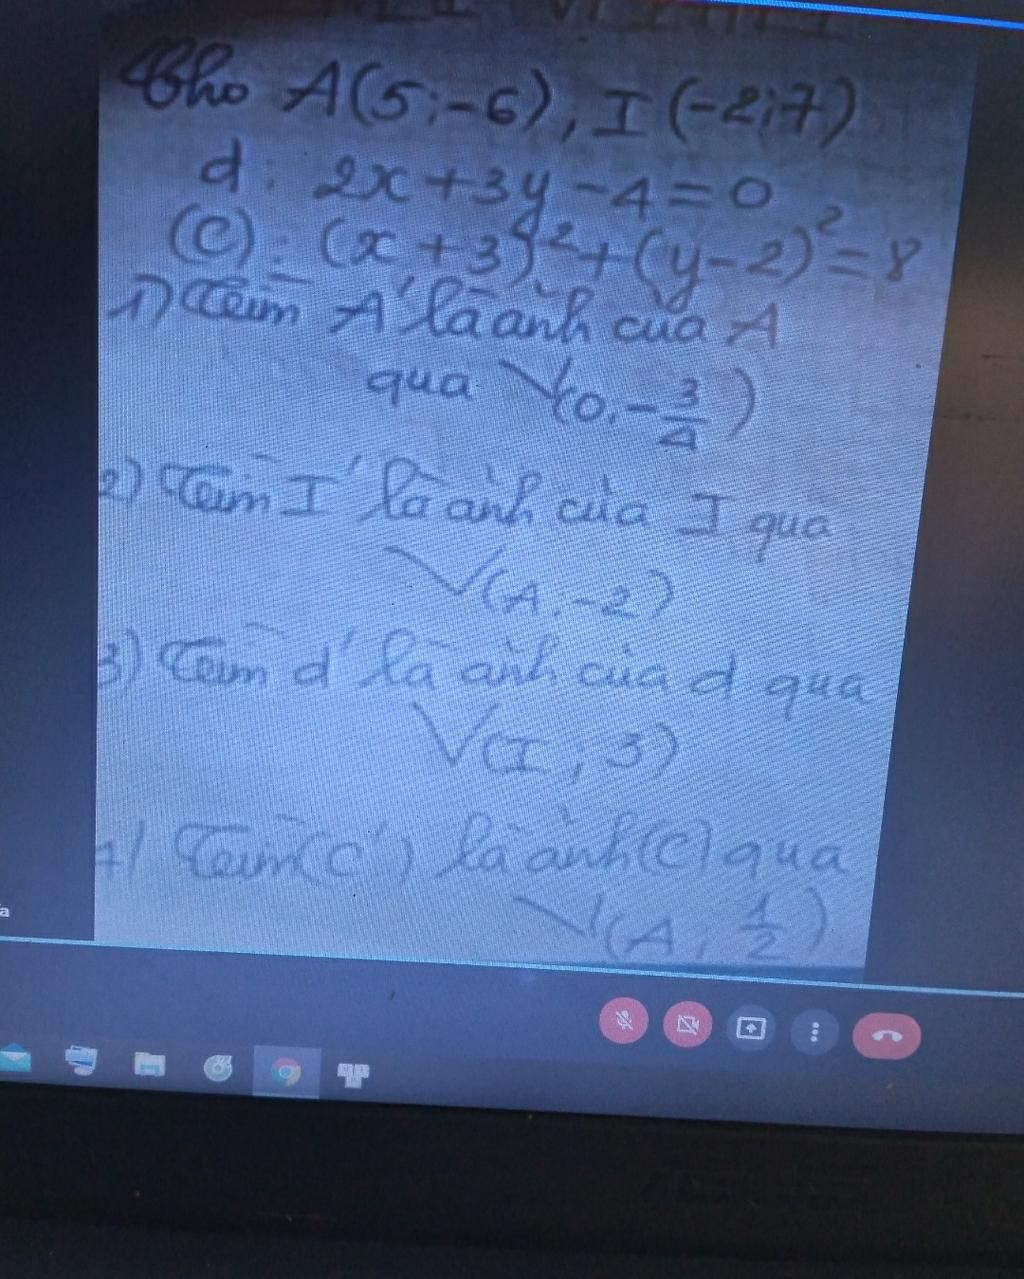 Cho A(5;-6), I(-2;7)
d: 2x+3y-4=0
(C): (x+3)²+(y-2)²=8
1) Tìm A' là ảnh của A
qua V(O,-3/4)
2) Tìm I' là ảnh của I qua
V(A,-2)
3) Tìm d' là ảnh của d qua
V(I;3)
4) Tìm (C') là ảnh (C) qua
V(A, 1/2)